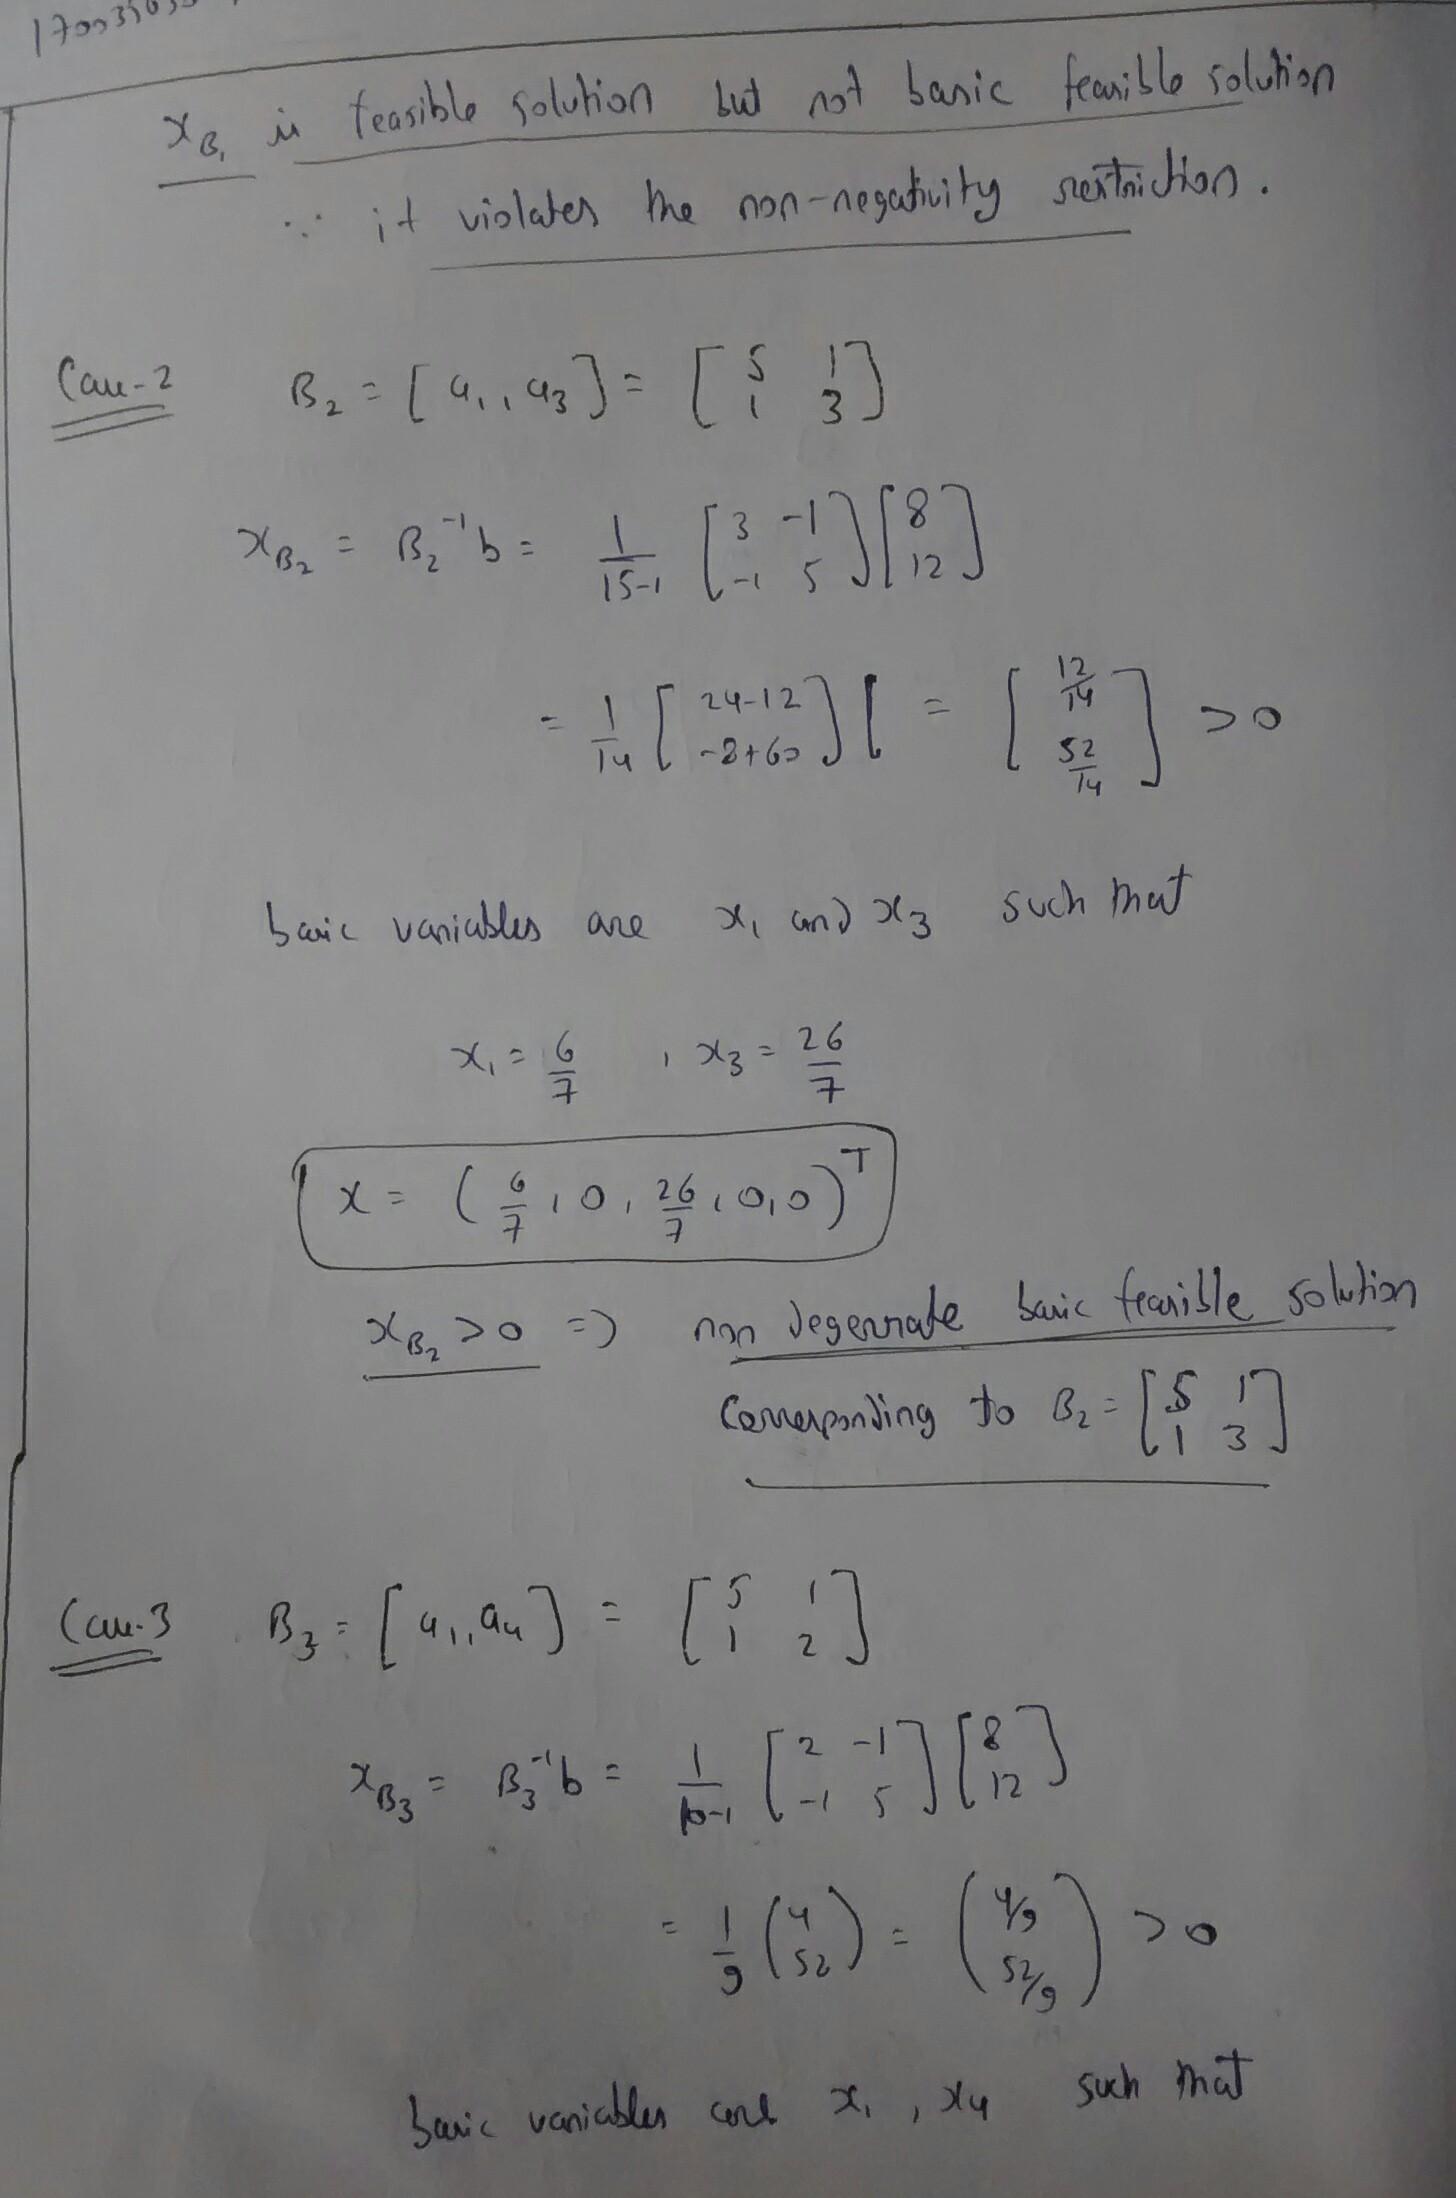 x_B₁ is feasible solution but not basic feasible solution
∵ it violates the non-negativity restriction.
Case-2 B₂ = [a₁, a₃] = [5 1; 1 3]
x_B₂ = B₂⁻¹b = 1/(15-1) [3 -1; -1 5] [8; 12]
= 1/14 [24-12; -8+60] [ = [12/14; 52/14] >0
basic variables are x₁ and x₃ such that
x₁ = 6/7 , x₃ = 26/7
x = (6/7, 0, 26/7, 0, 0)ᵀ
x_B₂ >0 => non degenrate basic feasible solution
Corresponding to B₂ = [5 1; 1 3]
Case-3 B₃ = [a₁, a₄] = [5 1; 1 2]
x_B₃ = B₃⁻¹b = 1/(10-1) [2 -1; -1 5] [8; 12]
= 1/9 (4; 52) = (4/9; 52/9) >0
basic variables are x₁, x₄ such that